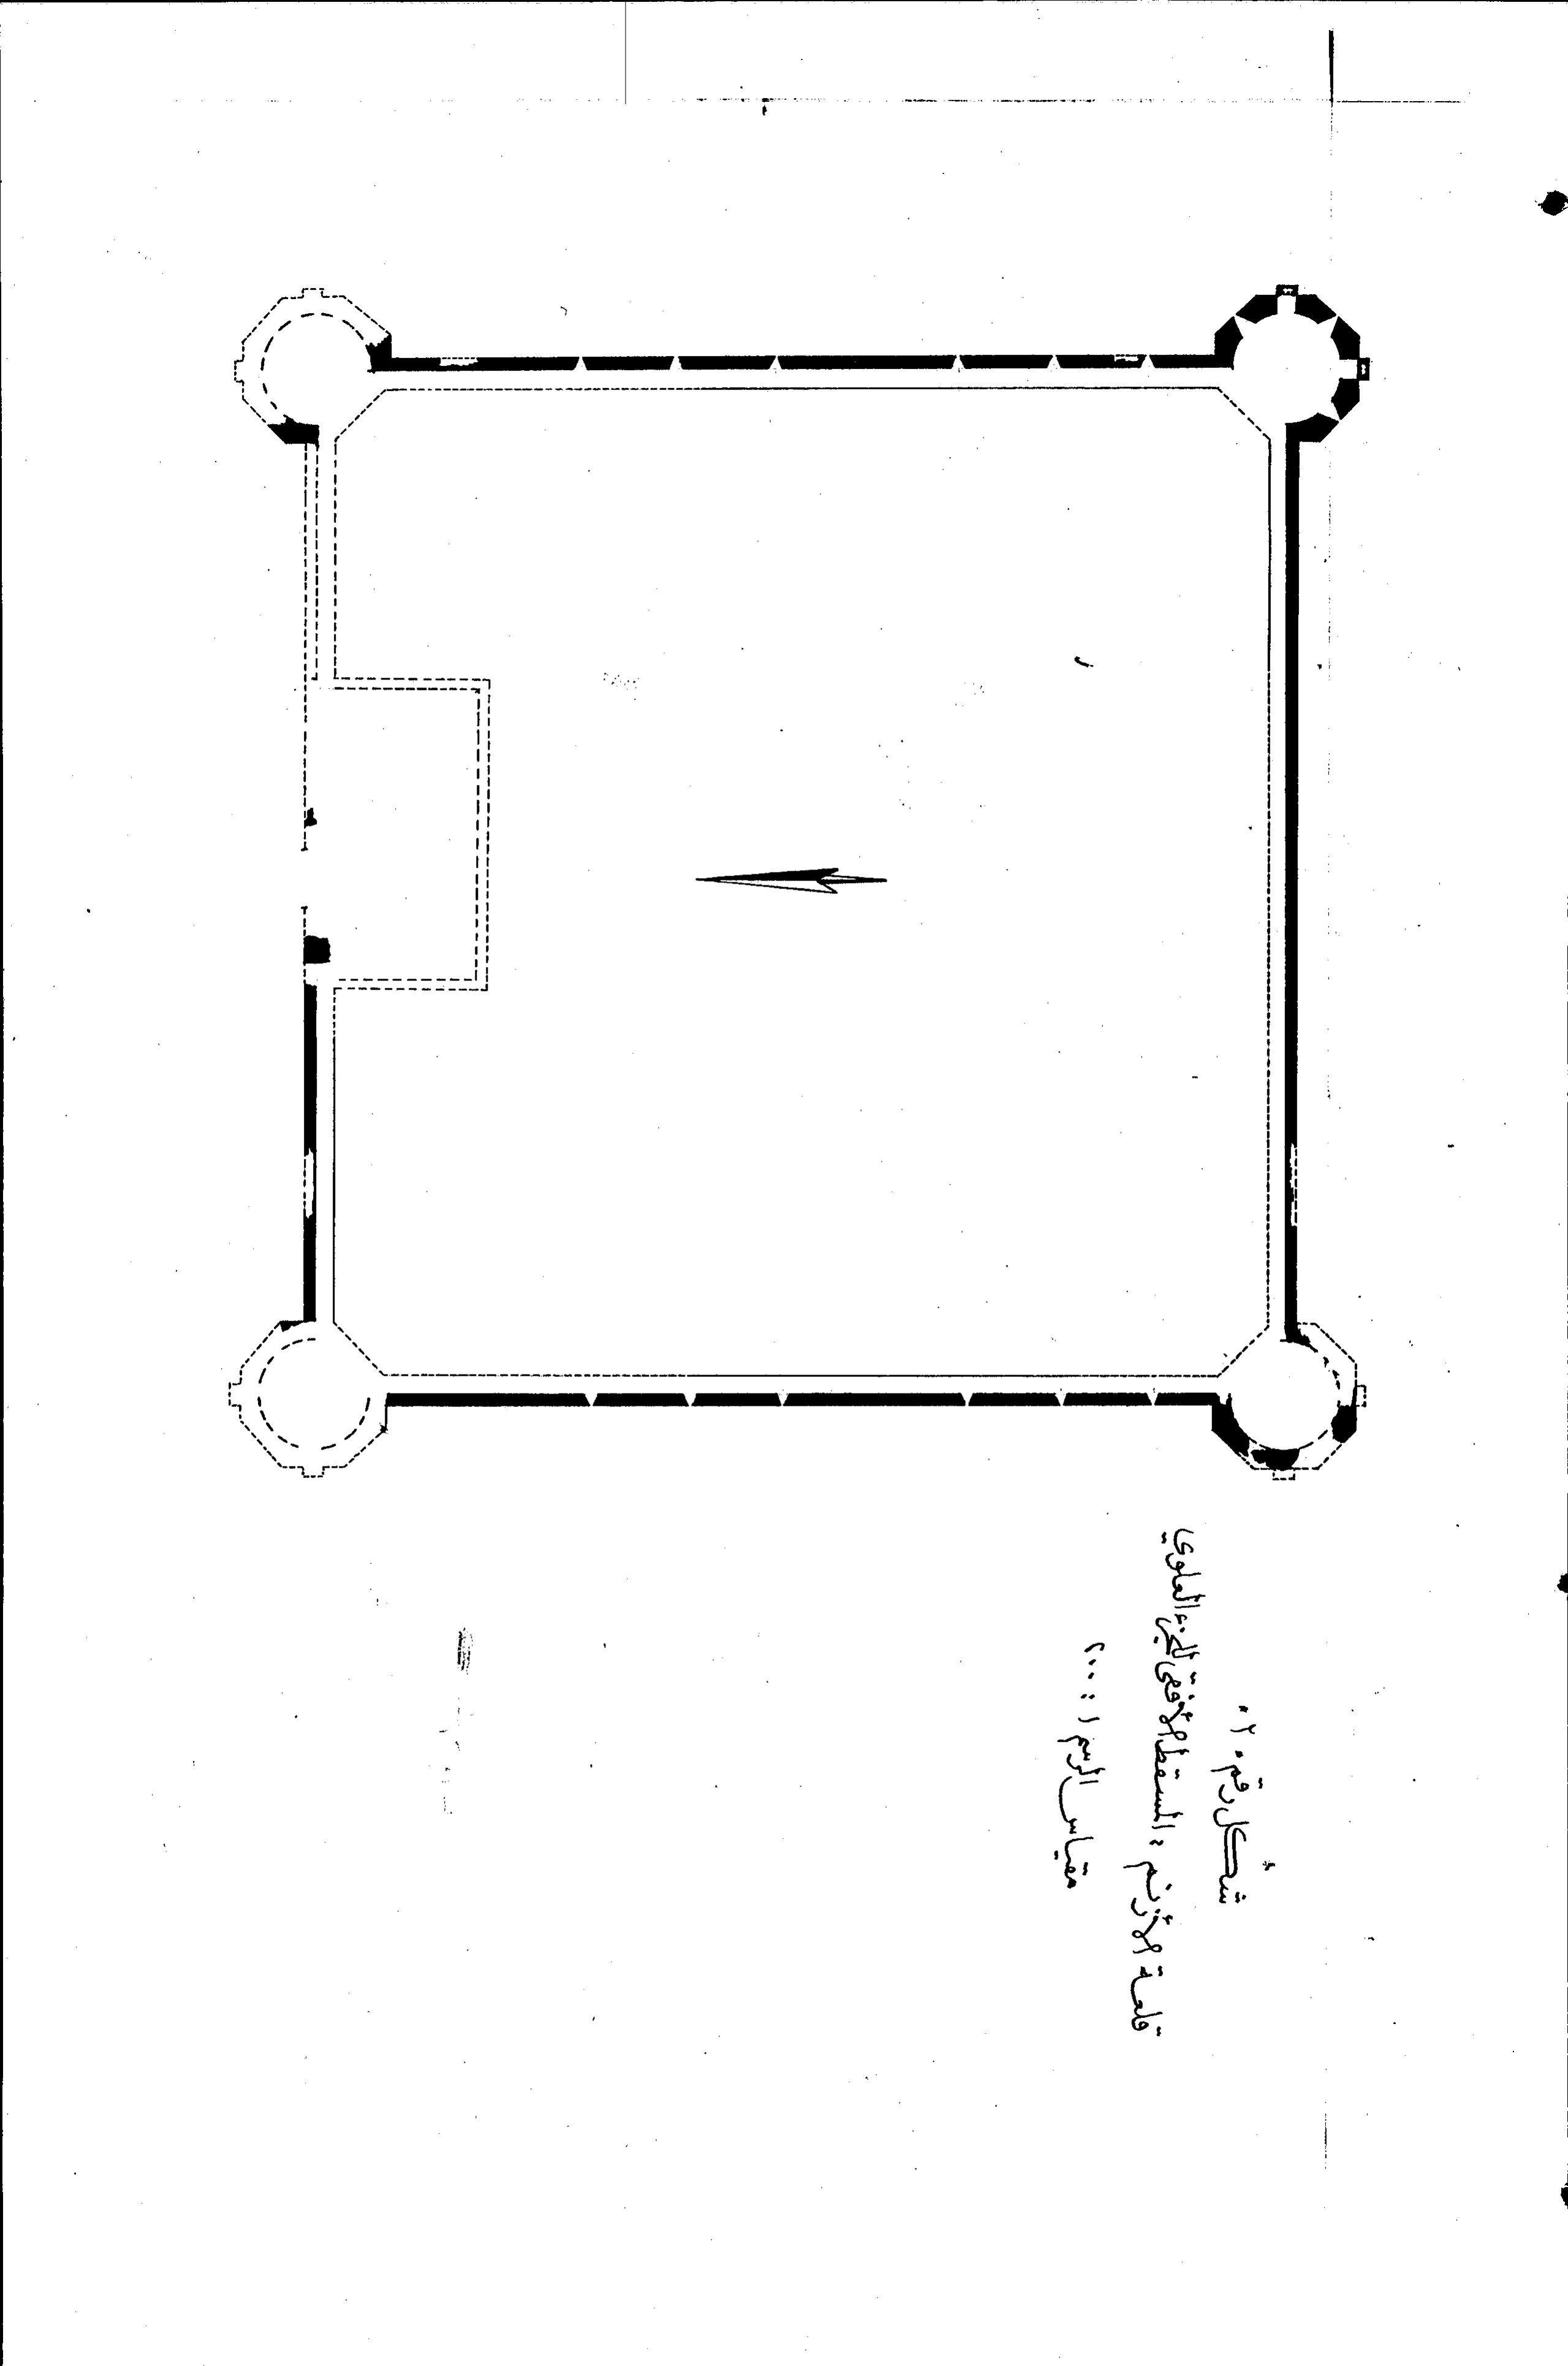 شكل رقم ٢٠
قلعة الأزنم : المسقط الأفقي للجزء العلوي
مقياس الرسم ١ : ٢٠٠